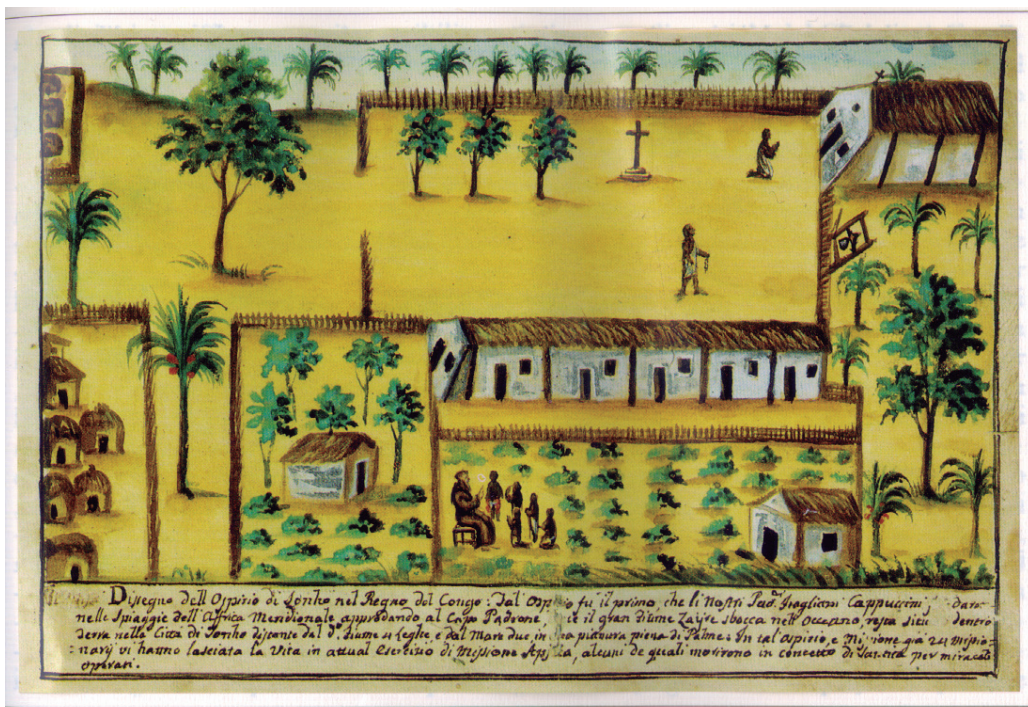 Dissegno dell Ospizio di Sonho nel Regno del Congo: Tal Osp io fu il primo, che li Nostri Pad. Cappuccini
nelle Spiaggie dell Affrica Meridionale approdando al Capo Padrone, e il gran fiume Zayre sbocca nell Occeano, resta situ dentro
terra nella Città di Sonho distante dal d. fiume 4 leghe, e dal Mare due, in pianura piena di Palme: In tal Ospizio, e Mi ione già 24 missio-
: narij vi hanno lasciata la Vita in attual Esercizio di Missione alcuni de quali morirono in concetto di Santità per miracoli
operati.